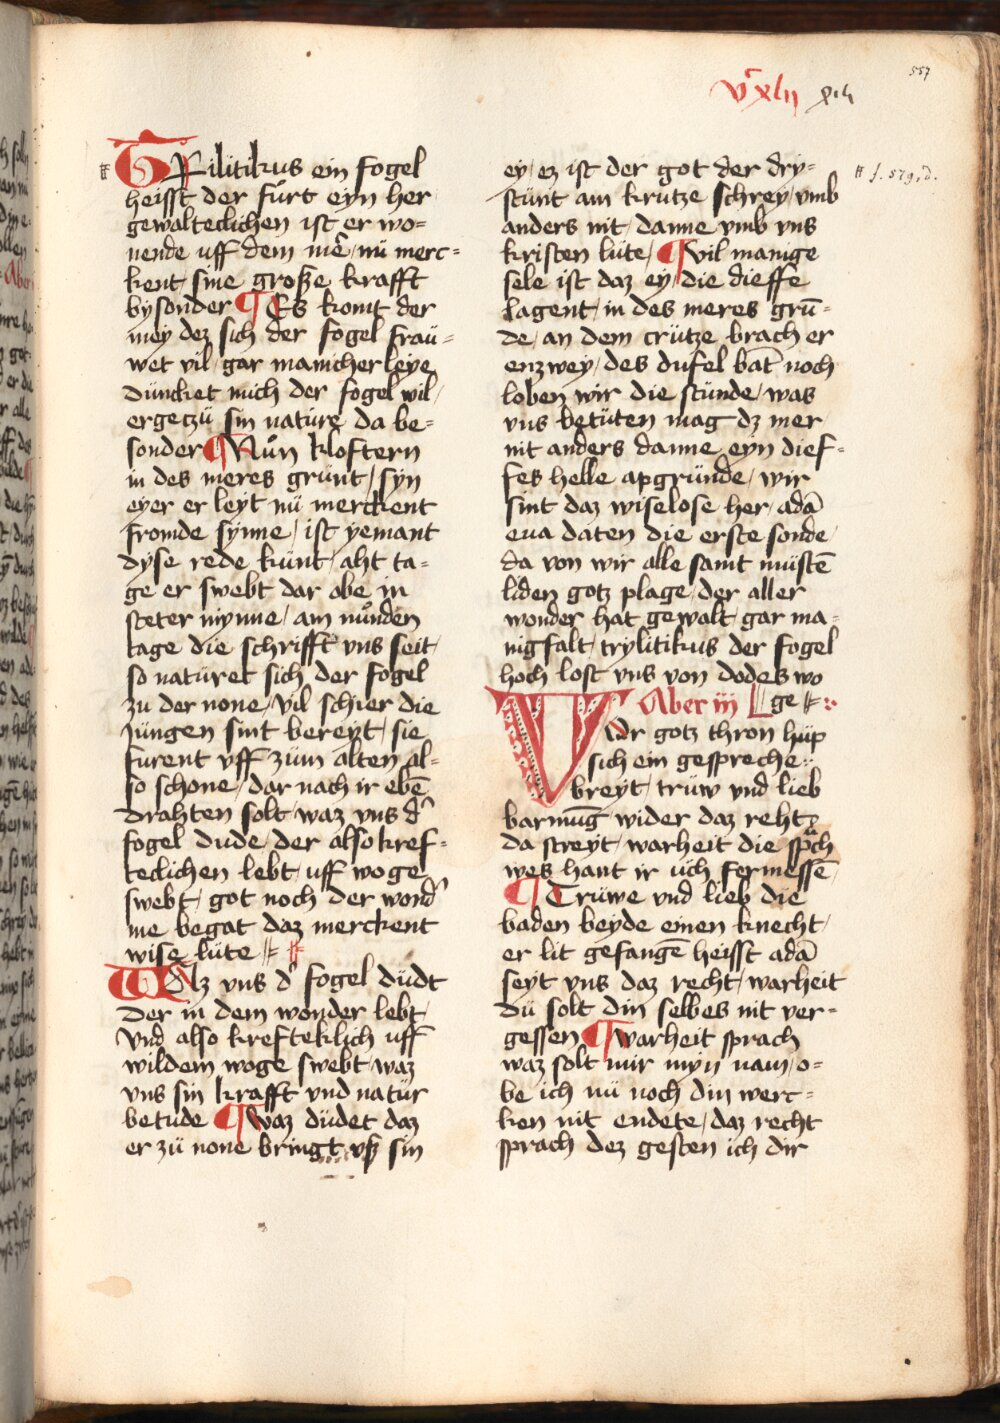 557
Vᶜxlij xlij
TRilitikus ein fogel
heisst der furt eyn her
gewalteclichen ist er wo=
nende uff dem mē / nü merc=
kent sine große krafft
bysonder ¶ Es komt der
mey dez sich der fogel fraü=
wet vil / gar manicherleye
düncket mich der fogel wil /
ergeczü sin natüre da be=
sonder ¶ Nün kloftern
in des meres grünt / syn
eyer er leyt nü merckent
fromde synne / ist yemant
dyse rede künt / aht ta=
ge er swebt dar abe in
steter mynne / am nünden
tage die schrifft vns seit
so natüret sich der fogel
zu der none / vil schier die
Jüngen sint bereyt / sie
furent vff züm alten al=
so schone / dar nach ir ebē
drahten solt / waz vns dˀ
fogel dude / der also kref=
teclichen lebt / uff woge
swebt / got noch der wondˀ
me begat daz merckent
wise lüte
WAz vns dˀ fogel düdt
der in dem wonder lebt /
Vnd also krefteklich uff
wildem woge swebt waz
vns sin krafft vnd natür
betude ¶ waz düdet daz
er zü none bringt vß sin
ey / ez ist der got der dry=
stünt am krütze schrey / vmb
anders nit / danne vmb vns
kristen lüte / ¶ vil manige
sele ist daz ey / die dieffe
lagent / in des meres grǖ=
de / an dem crütze brach er
enzwey / des dufel bāt noch
loben wir die stünde / was
vns betüten mag dz mer
nit anders danne eyn dief=
fes helle apgründe / wir
sint daz wiselose her / adā
eua daten die erste sonde /
da von wir alle samt müstē
liden gotz plage / der aller
wonder hat gewalt / gar ma=
nigfalt / trylitikus der fogel
hoch lost vns von dodes wo
Aber iij ge
VOr gotz thron hüp
sich ein gespreche
breyt / trüw vnd lieb
barmūg wider daz reht
da streyt / warheit die spͣch
wes hant ir üch fermessē
¶ Trüwe vnd lieb die
baden beyde einen knecht /
er lit gefangē heisst adā
seyt vns daz recht / warheit
dü solt din selbes nit ver=
gessen ¶ warheit sprach
waz solt mir myn nam / o=
be ich nü noch din werc=
ken nit endete / daz recht
sprach dez gesten ich dir
f. 579, d.